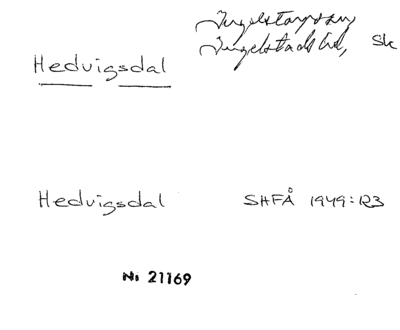 Ingelstorps sn
Ingelstads hd, Sk
Hedvigsdal
Hedvigsdal SHFÅ 1949:123
Ni 21169